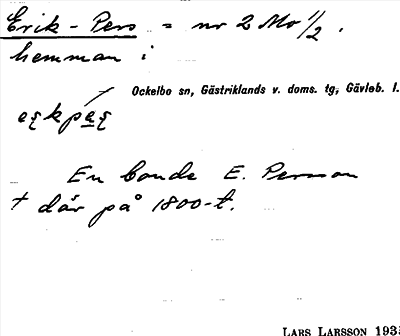 Erik-Pers = nr 2 Mo 1/2.
hemman i
Ockelbo sn, Gästriklands v. doms. tg, Gävleb. l.
En bonde E. Person
† där på 1800-t.
LARS LARSSON 193